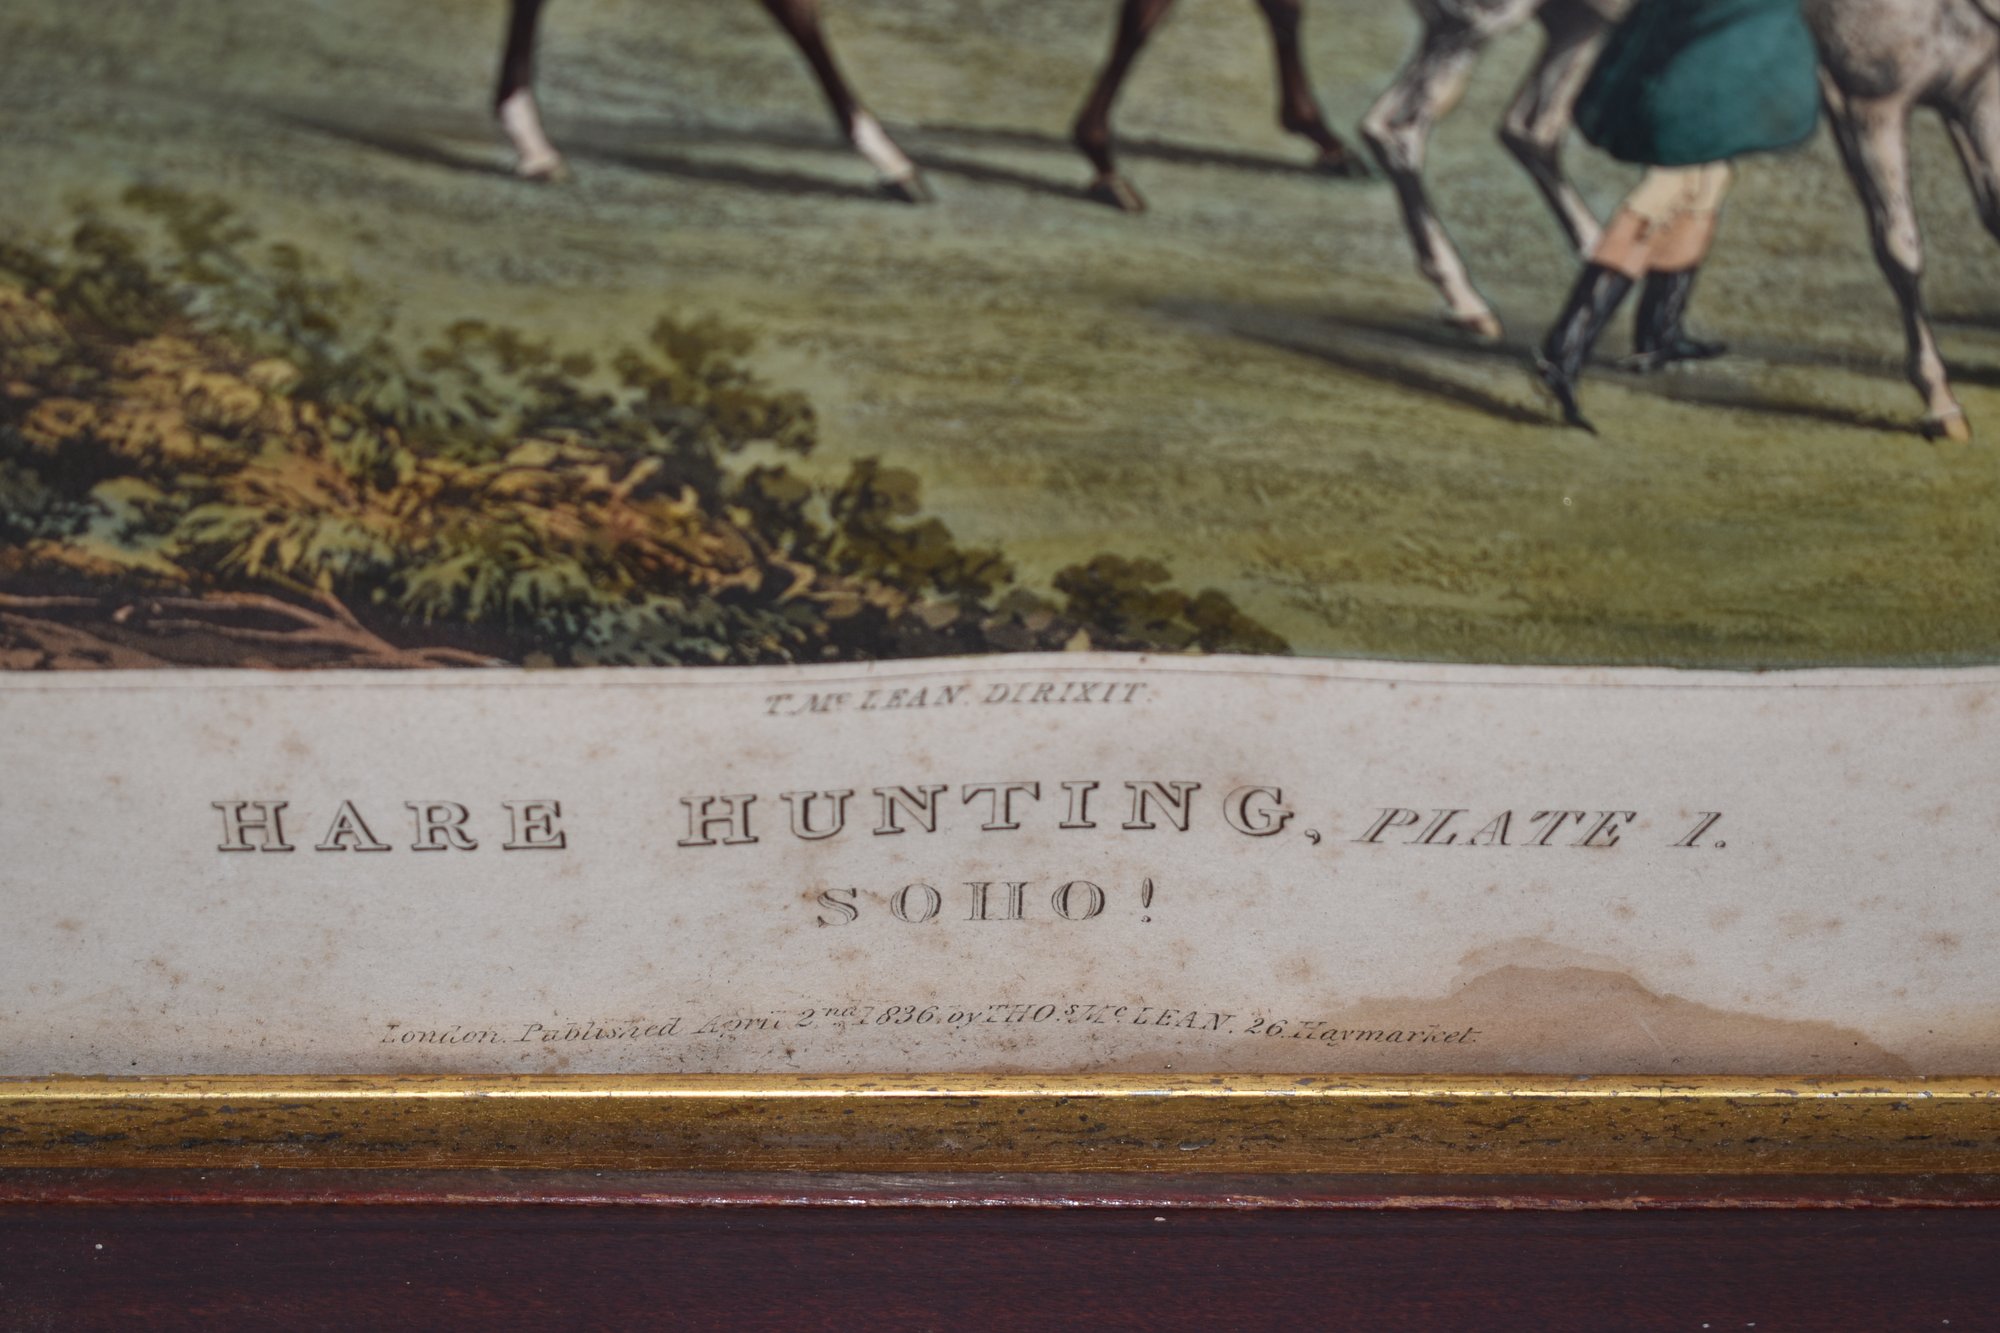 T. Mc LEAN. DIRIXIT.
HARE HUNTING, PLATE 1.
SOHO!
London. Published April 2nd 1836. by THOs Mc LEAN. 26. Haymarket.